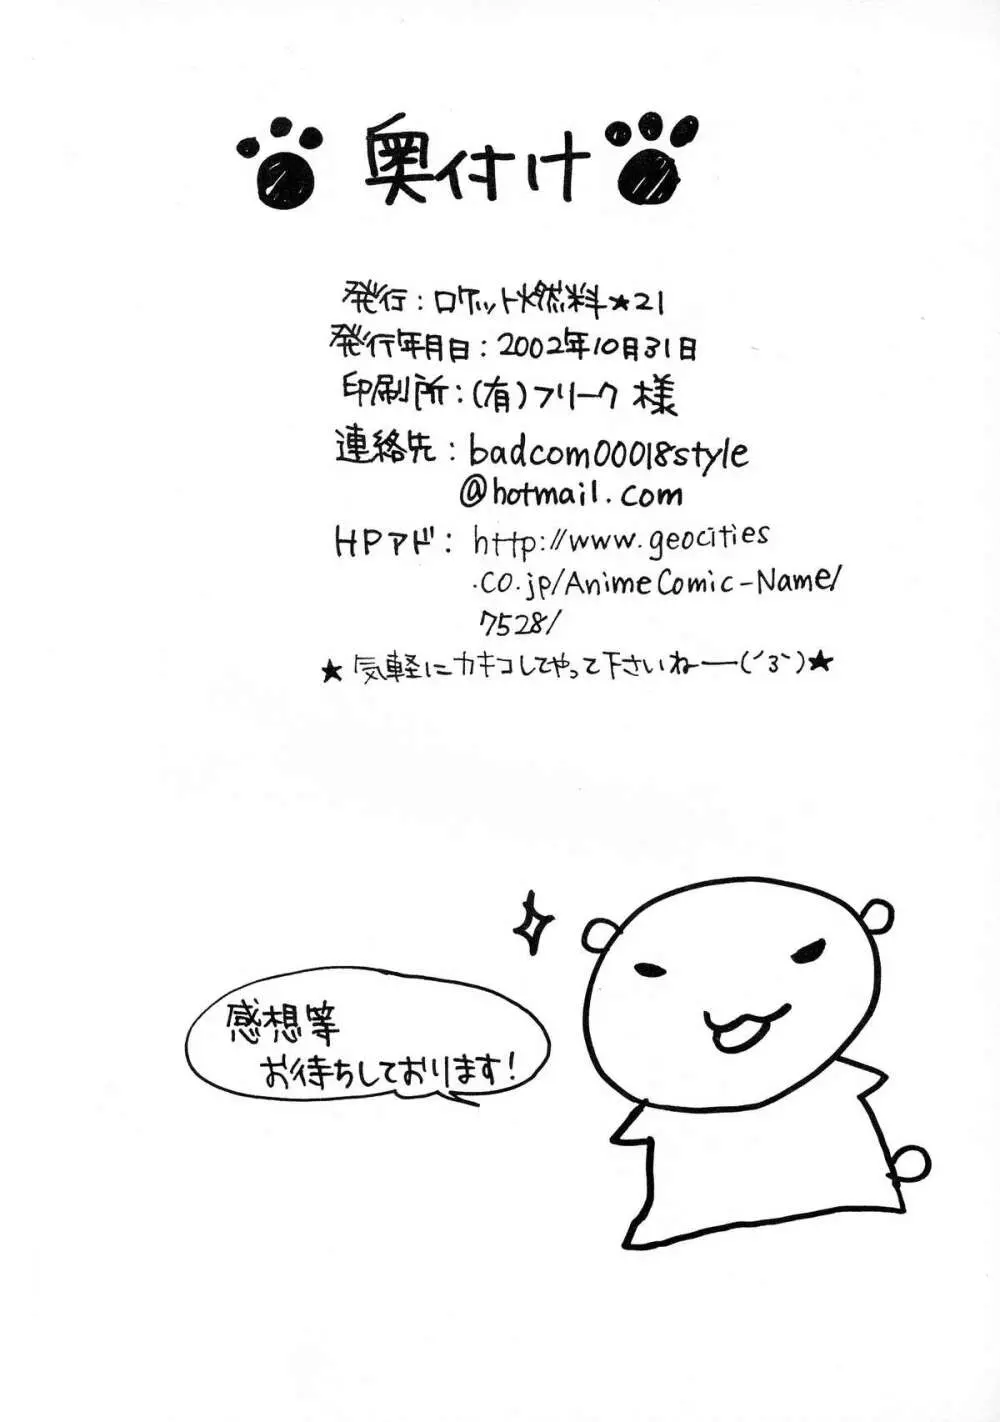 奥付け
発行：ロケット燃料★21
発行年月日：2002年10月31日
印刷所：(有)フリーク 様
連絡先：badcom00018style
@hotmail.com
HPアド：http://www.geocities
.co.jp/AnimeComic-Name/
7528/
★気軽にカキコしてやって下さいねー(´3｀)★
感想等
お待ちしております!